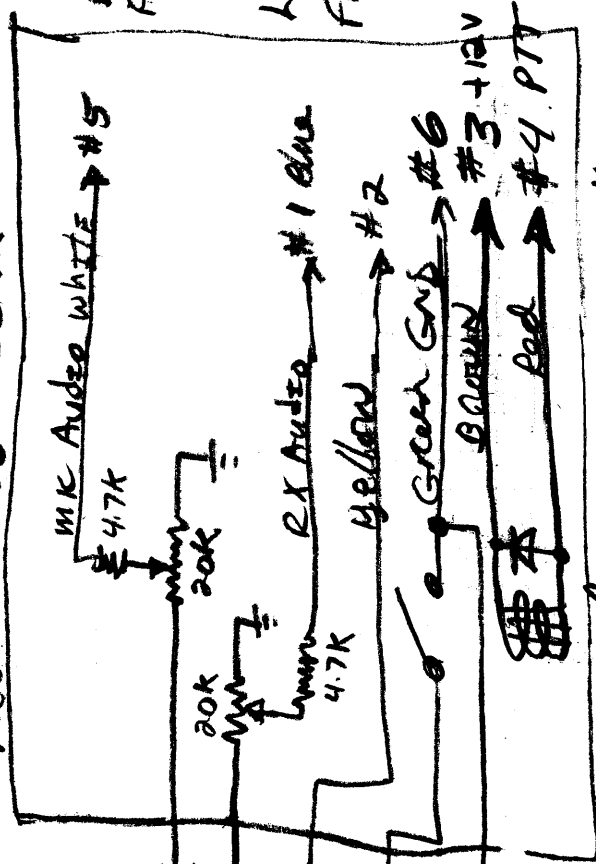 MK Audio white #5
4.7K
20K
RX Audio #1 Blue
20K
4.7K
Yellow #2
Green GND #6
Brown #3 +12V
Red #4 PTT